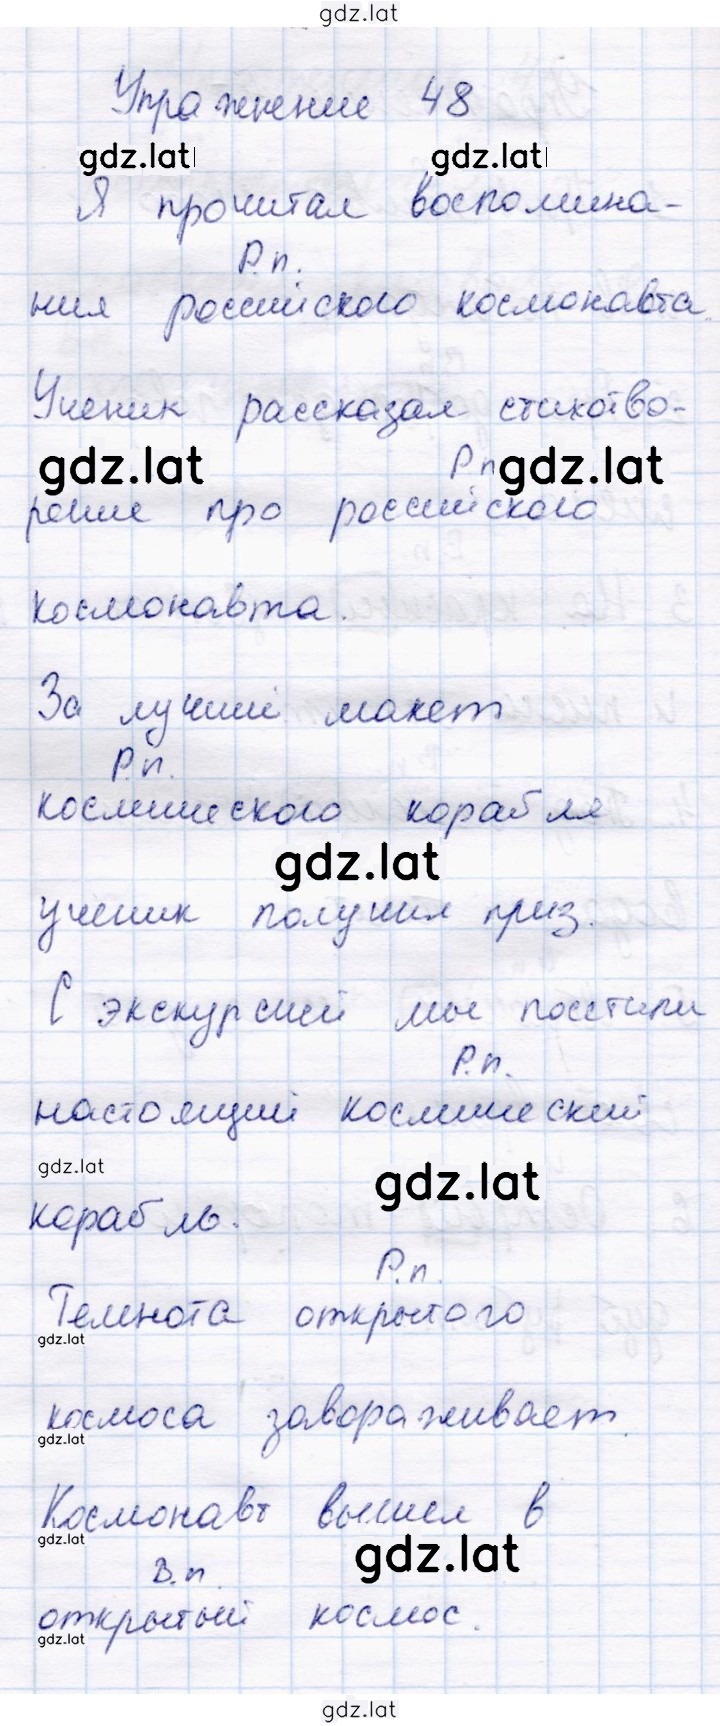 gdz.lat
Упражнение 48
gdz.lat gdz.lat
Я прочитал воспомина-
Р.п.
ния российского космонавта.
Ученик рассказал стихотво-
gdz.lat Р.п. gdz.lat
рение про российского
космонавта.
За лучший макет
Р.п.
космического корабля
gdz.lat
ученик получил приз.
С экскурсией мы посетили
Р.п.
настоящий космический
gdz.lat gdz.lat
корабль.
Р.п.
Темнота открытого
gdz.lat
космоса завораживает.
gdz.lat
Космонавт вышел в
gdz.lat gdz.lat
В.п.
открытый космос.
gdz.lat
gdz.lat